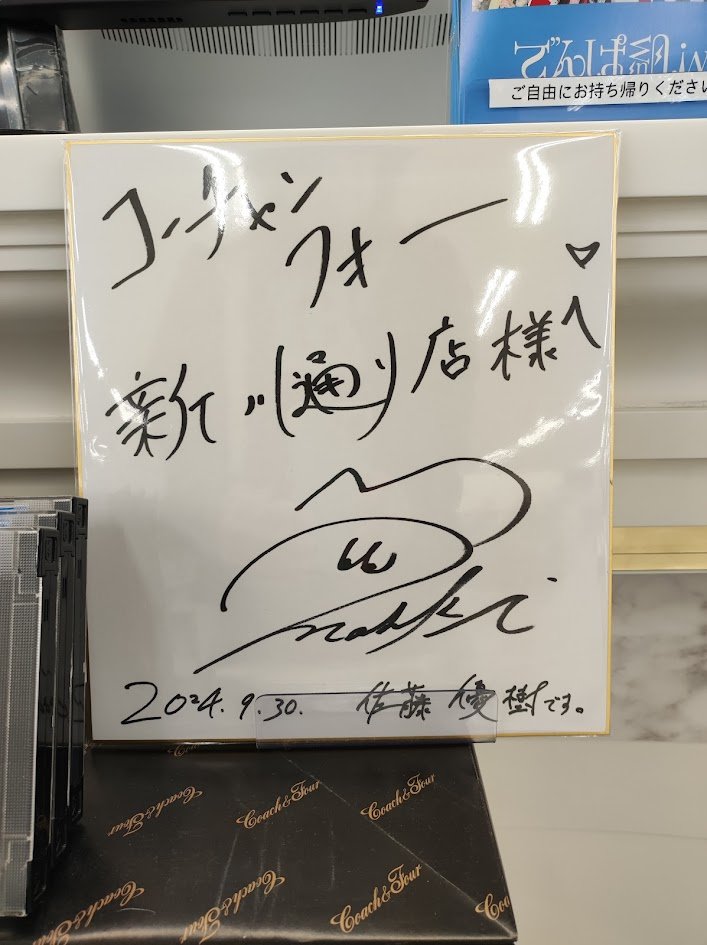 でんぱ組.in
ご自由にお持ち帰りくださ
コーチャン
フォー
新川通り店様へ
2024.9.30. 佐藤優樹です。
Coach&Four
Coach&Four
Coach&Four
Coach&Four
Coach&Four
Coach&Four